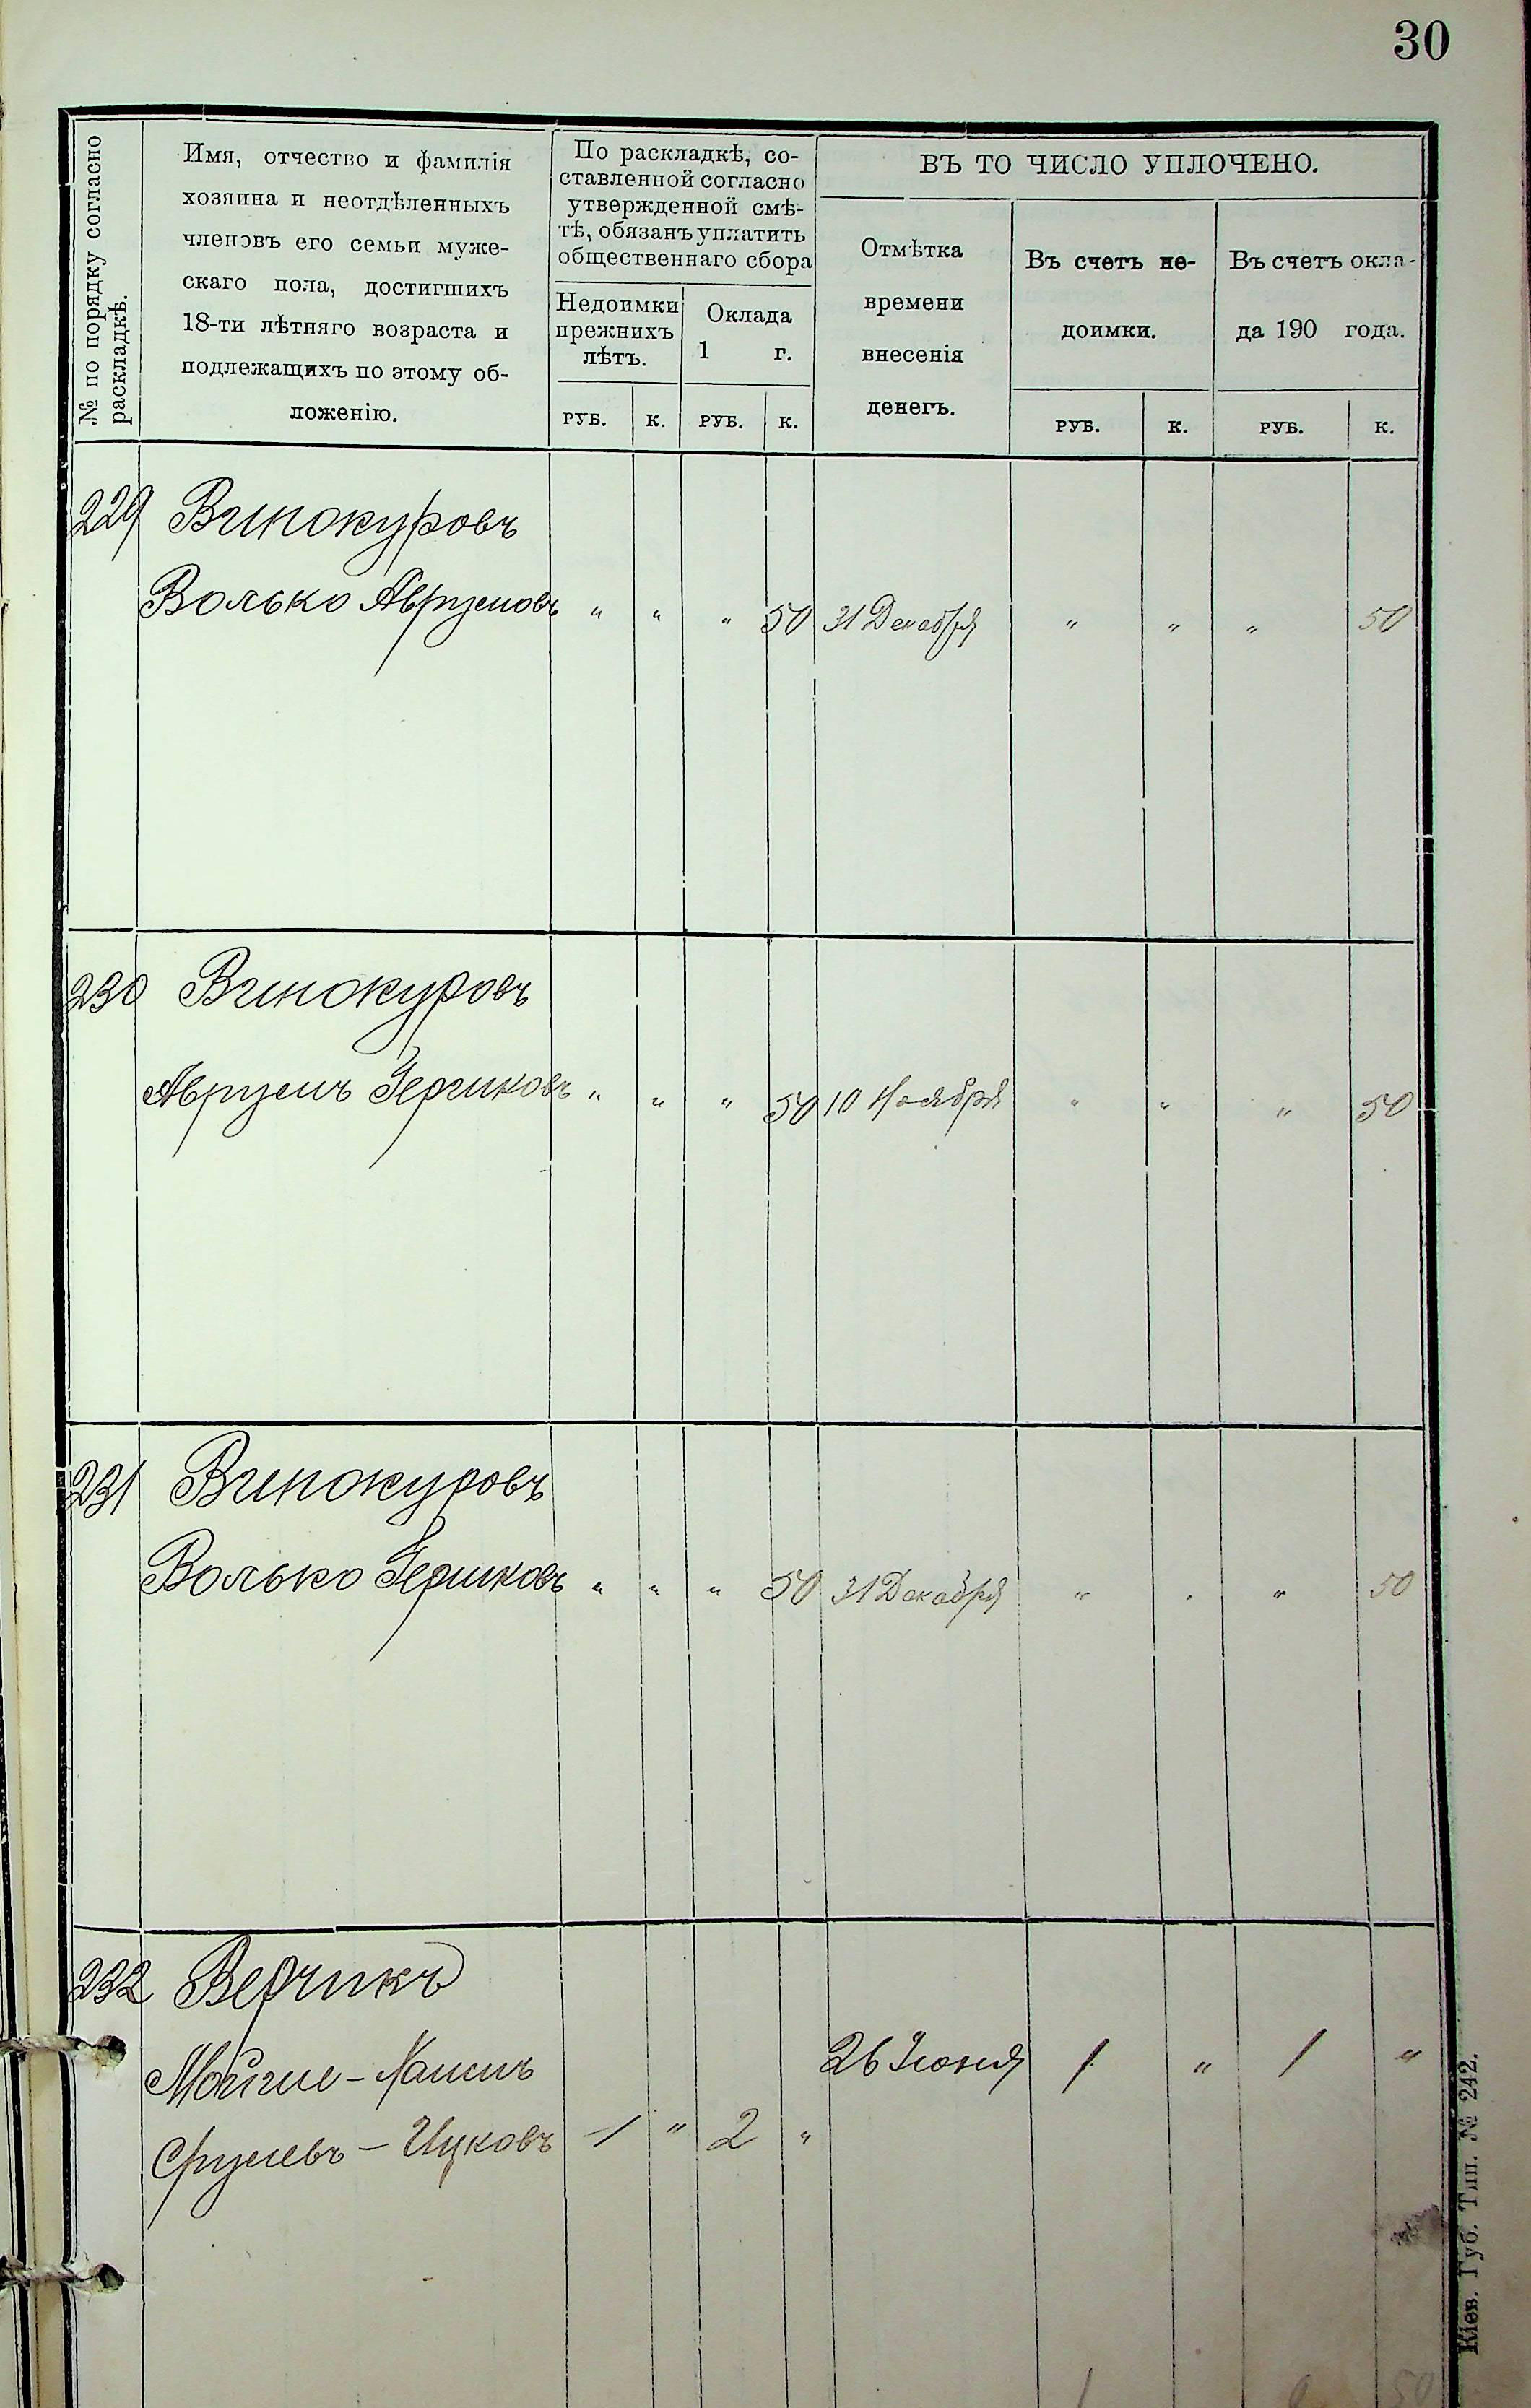 30
№ по порядку согласно
раскладкѣ.
Имя, отчество и фамилія
хозяина и неотдѣленныхъ
членовъ его семьи муже-
скаго пола, достигшихъ
18-ти лѣтняго возраста и
подлежащихъ по этому об-
ложенію.
По раскладкѣ, со-
ставленной согласно
утвержденной смѣ-
тѣ, обязанъ уплатить
общественнаго сбора
Недоимки
прежнихъ
лѣтъ.
Оклада
1 г.
ВЪ ТО ЧИСЛО УПЛОЧЕНО.
Отмѣтка
времени
внесенія
денегъ.
Въ счетъ не-
доимки.
Въ счетъ окла-
да 190 года.
РУБ. К. РУБ. К. РУБ. К. РУБ. К.
229 Винокуровъ
Волько Аврумовъ " " " 50 31 Декабря " " " 50
230 Винокуровъ
Аврумъ Гершковъ " " " 50 10 Ноября " " " 50
231 Винокуровъ
Волько Гершковъ " " " 50 31 Декабря " " " 50
232 Верчикъ
Мойше-Хаимъ 26 Іюня 1 " 1 "
Срулевъ-Ицковъ 1 " 2 "
Кіев. Губ. Тип. № 242.